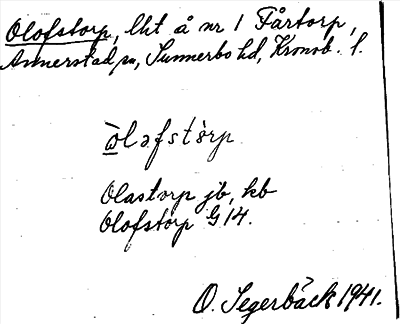 Olofstorp, lht å nr 1 Fårtorp,
Annerstad sn, Sunnerbo hd, Kronob. l.
òlafstòrp
Olastorp jb, kb
Olofstorp G14.
O. Segerbäck 1941.